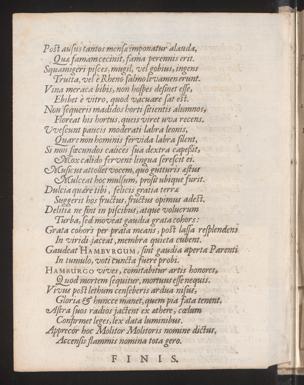 Post ausus tantos mensa imponatur alauda,
Qua famam cecinit, fama perennis erit.
Squamigeri pisces, mugil, vel gobius, ingens
Trutta, vel è Rheno salmo levamen erunt.
Vina meraca bibis, non hospes desinet esse,
Ebibet è vitro, quod vacuare sat est.
Non sequeris madidos horti sitientis alumnos,
Floreat his hortus, queis viret uva recens.
Vvescunt paucis moderati labra leonis,
Quare non hominis fervida labra silent.
Si non fœcundos calices sua dextra capessit,
Mox calido fervens lingua ferescit ei.
Musicus attollet vocem, quo gutturis astus
Mulceat hoc mulsum, prosit ubique furit.
Dulcia quære tibi, felicis gratia terræ
Suggerit hos fructus, fructus opimus adest.
Delitiæ ne sint in piscibus, atque volucrum
Turba, sed moveat gaudia grata cohors:
Grata cohors per prata means, post lassa resplendens
In viridi jaceat, membra quieta cubent.
Gaudeat HAMBURGUM, sint gaudia aperta Parenti
In tumulo, voti cuncta fuere probi.
HAMBURGO vives, comitabitur artis honores,
Quod mortem sequitur, mortuus esse nequis.
Vivus post lethum censeberis arduus nisus,
Gloria & huncce manet, quem pia fata tenent.
Astra suos radios jactent ex æthere, cœlum
Confirmet leges, lex data luminibus.
Apprecor hoc Molitor Molitoris nomine dictus,
Accensis flammis nomina tota gero.
FINIS.